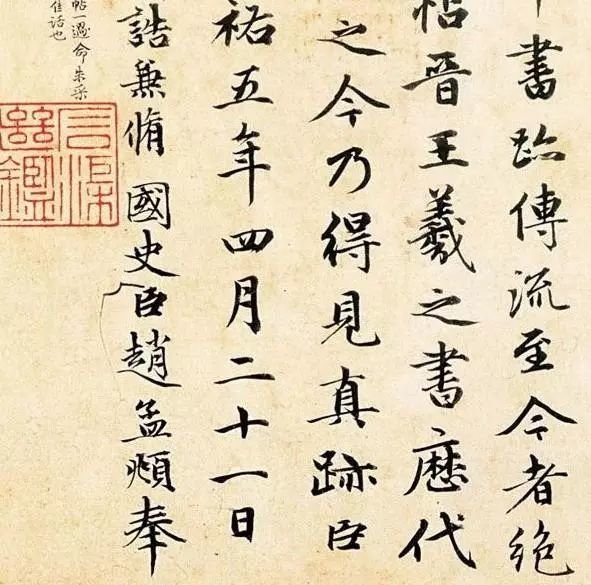 書跡傳流至今者絕
帖晉王羲之書歷代
之今乃得見真跡臣
祐五年四月二十一日
誥兼脩國史臣趙孟頫奉
帖一過命朱采
佳話也